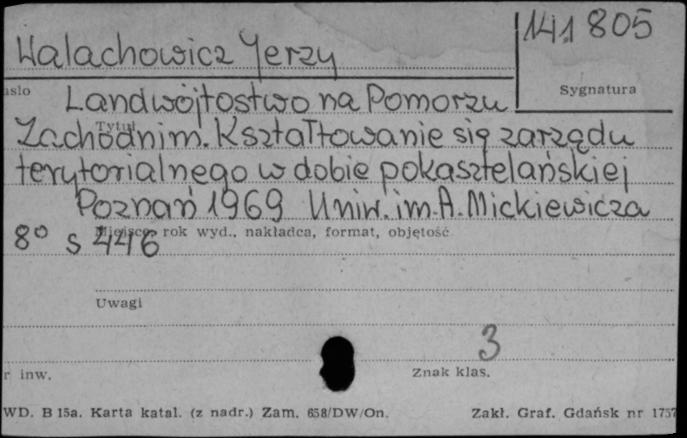 141 805
Walachowicz Jerzy
asło
Sygnatura
Landwójtostwo na Pomorzu
Tytuł
Zachodnim. Kształtowanie się zarządu
terytorialnego w dobie pokasztelańskiej
Poznań 1969 Uniw. im. A. Mickiewicza
Miejsce, rok wyd., nakładca, format, objętość
8° s 446
Uwagi
3
r inw.
Znak klas.
WD. B 15a. Karta katal. (z nadr.) Zam. 658/DW/On. Zakł. Graf. Gdańsk nr 1757